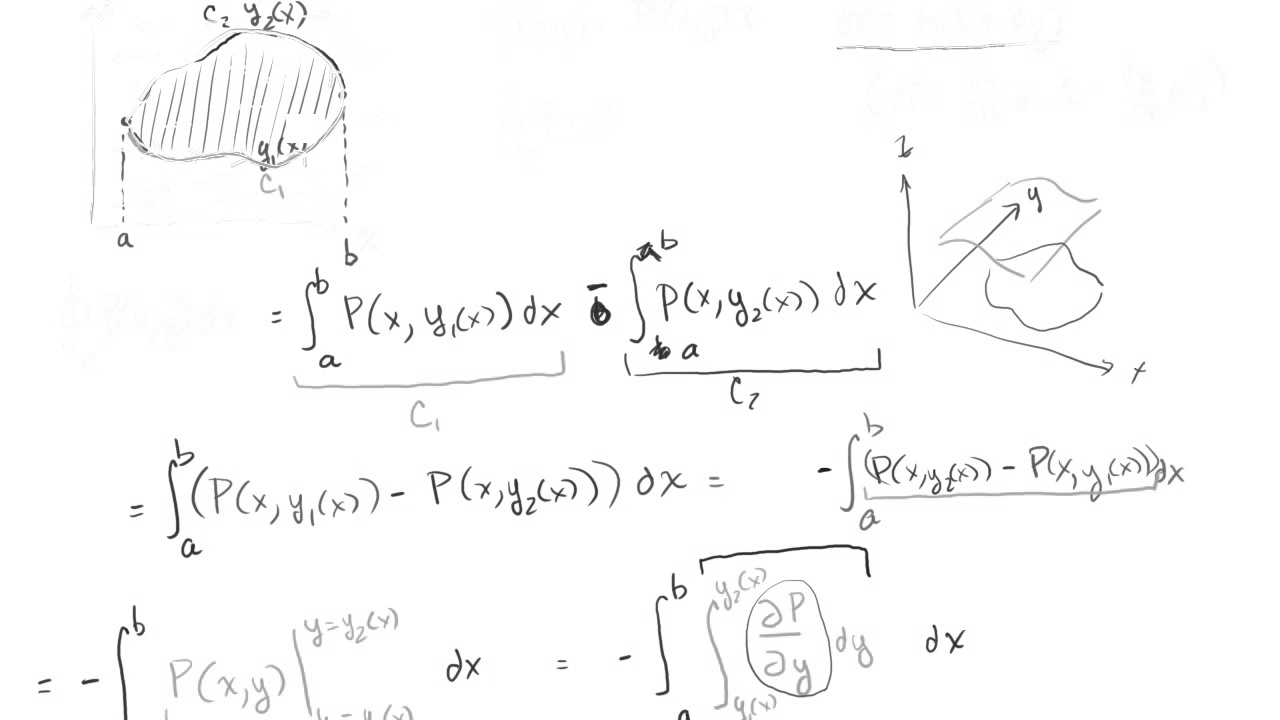 C₂ y₂(x)
y₁(x)
C₁
a
b
z
y
x
= ∫ₐᵇ P(x, y₁(x)) dx − ∫ₐᵇ P(x, y₂(x)) dx
C₁
C₂
= ∫ₐᵇ (P(x, y₁(x)) - P(x, y₂(x))) dx = - ∫ₐᵇ (P(x, y₂(x)) - P(x, y₁(x))) dx
= - ∫ᵇ P(x,y) | y=y₂(x) y=y₁(x) dx = - ∫ₐᵇ ∫ y₂(x) y₁(x) ∂P/∂y dy dx